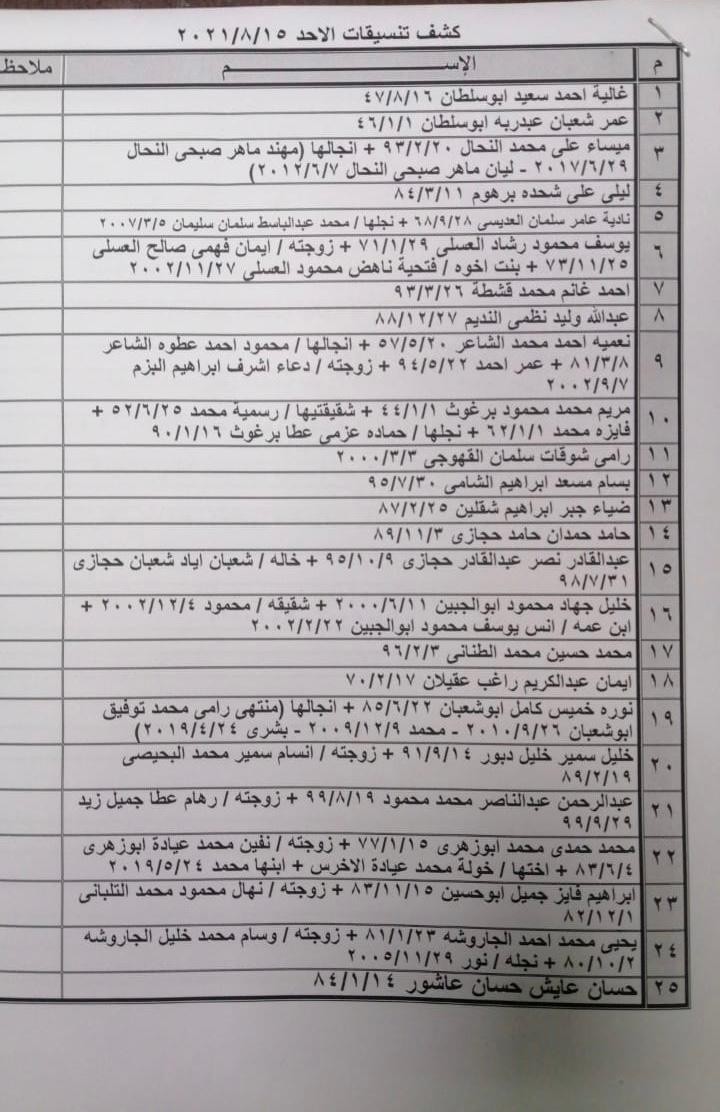 كشف تنسيقات الاحد ٢٠٢١/٨/١٥
م الإســـــــــــــــم ملاحظ
١ غالية احمد سعيد ابوسلطان ٤٧/٨/١٦
٢ عمر شعبان عبدربه ابوسلطان ٤٦/١/١
٣ ميساء على محمد النحال ٩٣/٢/٢٠ + انجالها (مهند ماهر صبحى النحال
٢٠١٧/٦/٢٩ - ليان ماهر صبحى النحال ٢٠١٢/٦/٧)
٤ ليلى على شحده برهوم ٨٤/٣/١١
٥ نادية عامر سلمان العديسى ٦٨/٩/٢٨ + نجلها / محمد عبدالباسط سلمان سليمان ٢٠٠٧/٣/٥
٦ يوسف محمود رشاد العسلى ٧١/١/٢٩ + زوجته / ايمان فهمى صالح العسلى
٧٣/١١/٢٥ + بنت اخوه / فتحية ناهض محمود العسلى ٢٠٠٢/١١/٢٧
٧ احمد غانم محمد قشطة ٩٣/٣/٢٦
٨ عبدالله وليد نظمى النديم ٨٨/١٢/٢٧
٩ نعميه احمد محمد الشاعر ٥٧/٥/٢٠ + انجالها / محمود احمد عطوه الشاعر
٨١/٣/٨ + عمر احمد ٩٤/٥/٢٢ + زوجته / دعاء اشرف ابراهيم البزم
٢٠٠٢/٩/٧
١٠ مريم محمد محمود برغوث ٤٤/١/١ + شقيقتيها / رسمية محمد ٥٢/٦/٢٥ +
فايزه محمد ٦٢/١/١ + نجلها / حماده عزمى عطا برغوث ٩٠/١/١٦
١١ رامى شوقات سلمان القهوجى ٢٠٠٠/٣/٣
١٢ بسام مسعد ابراهيم الشامى ٩٥/٧/٣٠
١٣ ضياء جبر ابراهيم شقلين ٨٧/٢/٢٥
١٤ حامد حمدان حامد حجازى ٨٩/١١/٣
١٥ عبدالقادر نصر عبدالقادر حجازى ٩٥/١٠/٩ + خاله / شعبان اياد شعبان حجازى
٩٨/٧/٣١
١٦ خليل جهاد محمود ابوالجبين ٢٠٠٠/٦/١١ + شقيقه / محمود ٢٠٠٢/١٢/٤ +
ابن عمه / انس يوسف محمود ابوالجبين ٢٠٠٢/٢/٢٢
١٧ محمد حسين محمد الطنانى ٩٦/٢/٣
١٨ ايمان عبدالكريم راغب عقيلان ٧٠/٢/١٧
١٩ نوره خميس كامل ابوشعبان ٨٥/٦/٢٢ + انجالها (منتهى رامى محمد توفيق
ابوشعبان ٢٠١٠/٩/٢٦ - محمد ٢٠٠٩/١٢/٩ - بشرى ٢٠١٩/٤/٢٤)
٢٠ خليل سمير خليل دبور ٩١/٩/١٤ + زوجته / انسام سمير محمد البحيصى
٨٩/٢/١٩
٢١ عبدالرحمن عبدالناصر محمد محمود ٩٩/٨/١٩ + زوجته / رهام عطا جميل زيد
٩٩/٩/٢٩
٢٢ محمد حمدى محمد ابوزهرى ٧٧/١/١٥ + زوجته / نفين محمد عيادة ابوزهرى
٨٣/٦/٤ + اختها / خولة محمد عيادة الاخرس + ابنها محمد ٢٠١٩/٥/٢٤
٢٣ ابراهيم فايز جميل ابوحسين ٨٣/١١/١٥ + زوجته / نهال محمود محمد التلبانى
٨٢/١٢/١
٢٤ يحيى محمد احمد الجاروشه ٨١/١/٢٣ + زوجته / وسام محمد خليل الجاروشه
٨٠/١٠/٢ + نجله / نور ٢٠٠٥/١١/٢٩
٢٥ حسان عايش حسان عاشور ٨٤/١/١٤